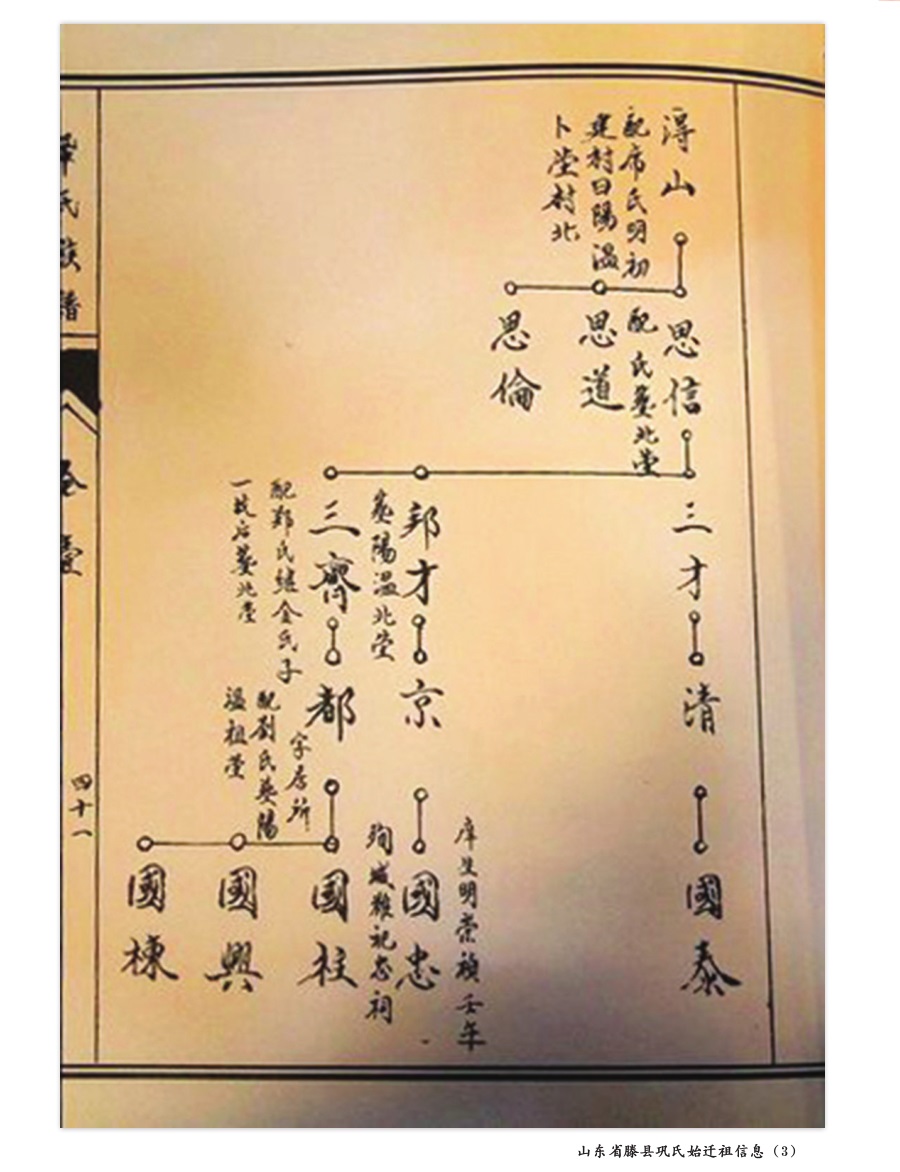 淂山
配席氏明初
建村曰陽溫
卜塋村北
思信
配 氏塟北塋
思道
思倫
三才
邦才
塟陽溫北塋
三齊
配鄭氏繼金氏子
一故后塟北塋
清
京
都
字居所
配劉氏塟陽
溫祖塋
國泰
庠生明崇禎壬午
國忠
殉城難祀忠祠
國柱
國興
國棟
氏族譜
四十一
山东省滕县巩氏始迁祖信息（3）